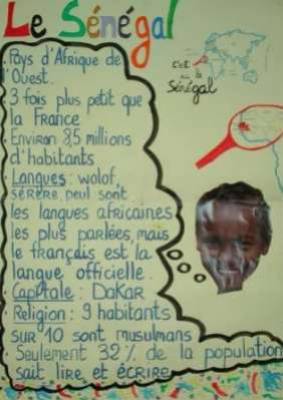 Le Sénégal
Pays d'Afrique de
l'Ouest.
3 fois plus petit que
la France
Environ 8,5 millions
d'habitants
Langues : wolof,
sérère, peul sont
les langues africaines
les plus parlées, mais
le français est la
langue officielle.
Capitale : Dakar
Religion : 9 habitants
sur 10 sont musulmans
Seulement 32% de la population
sait lire et écrire
c'est
le
Sénégal